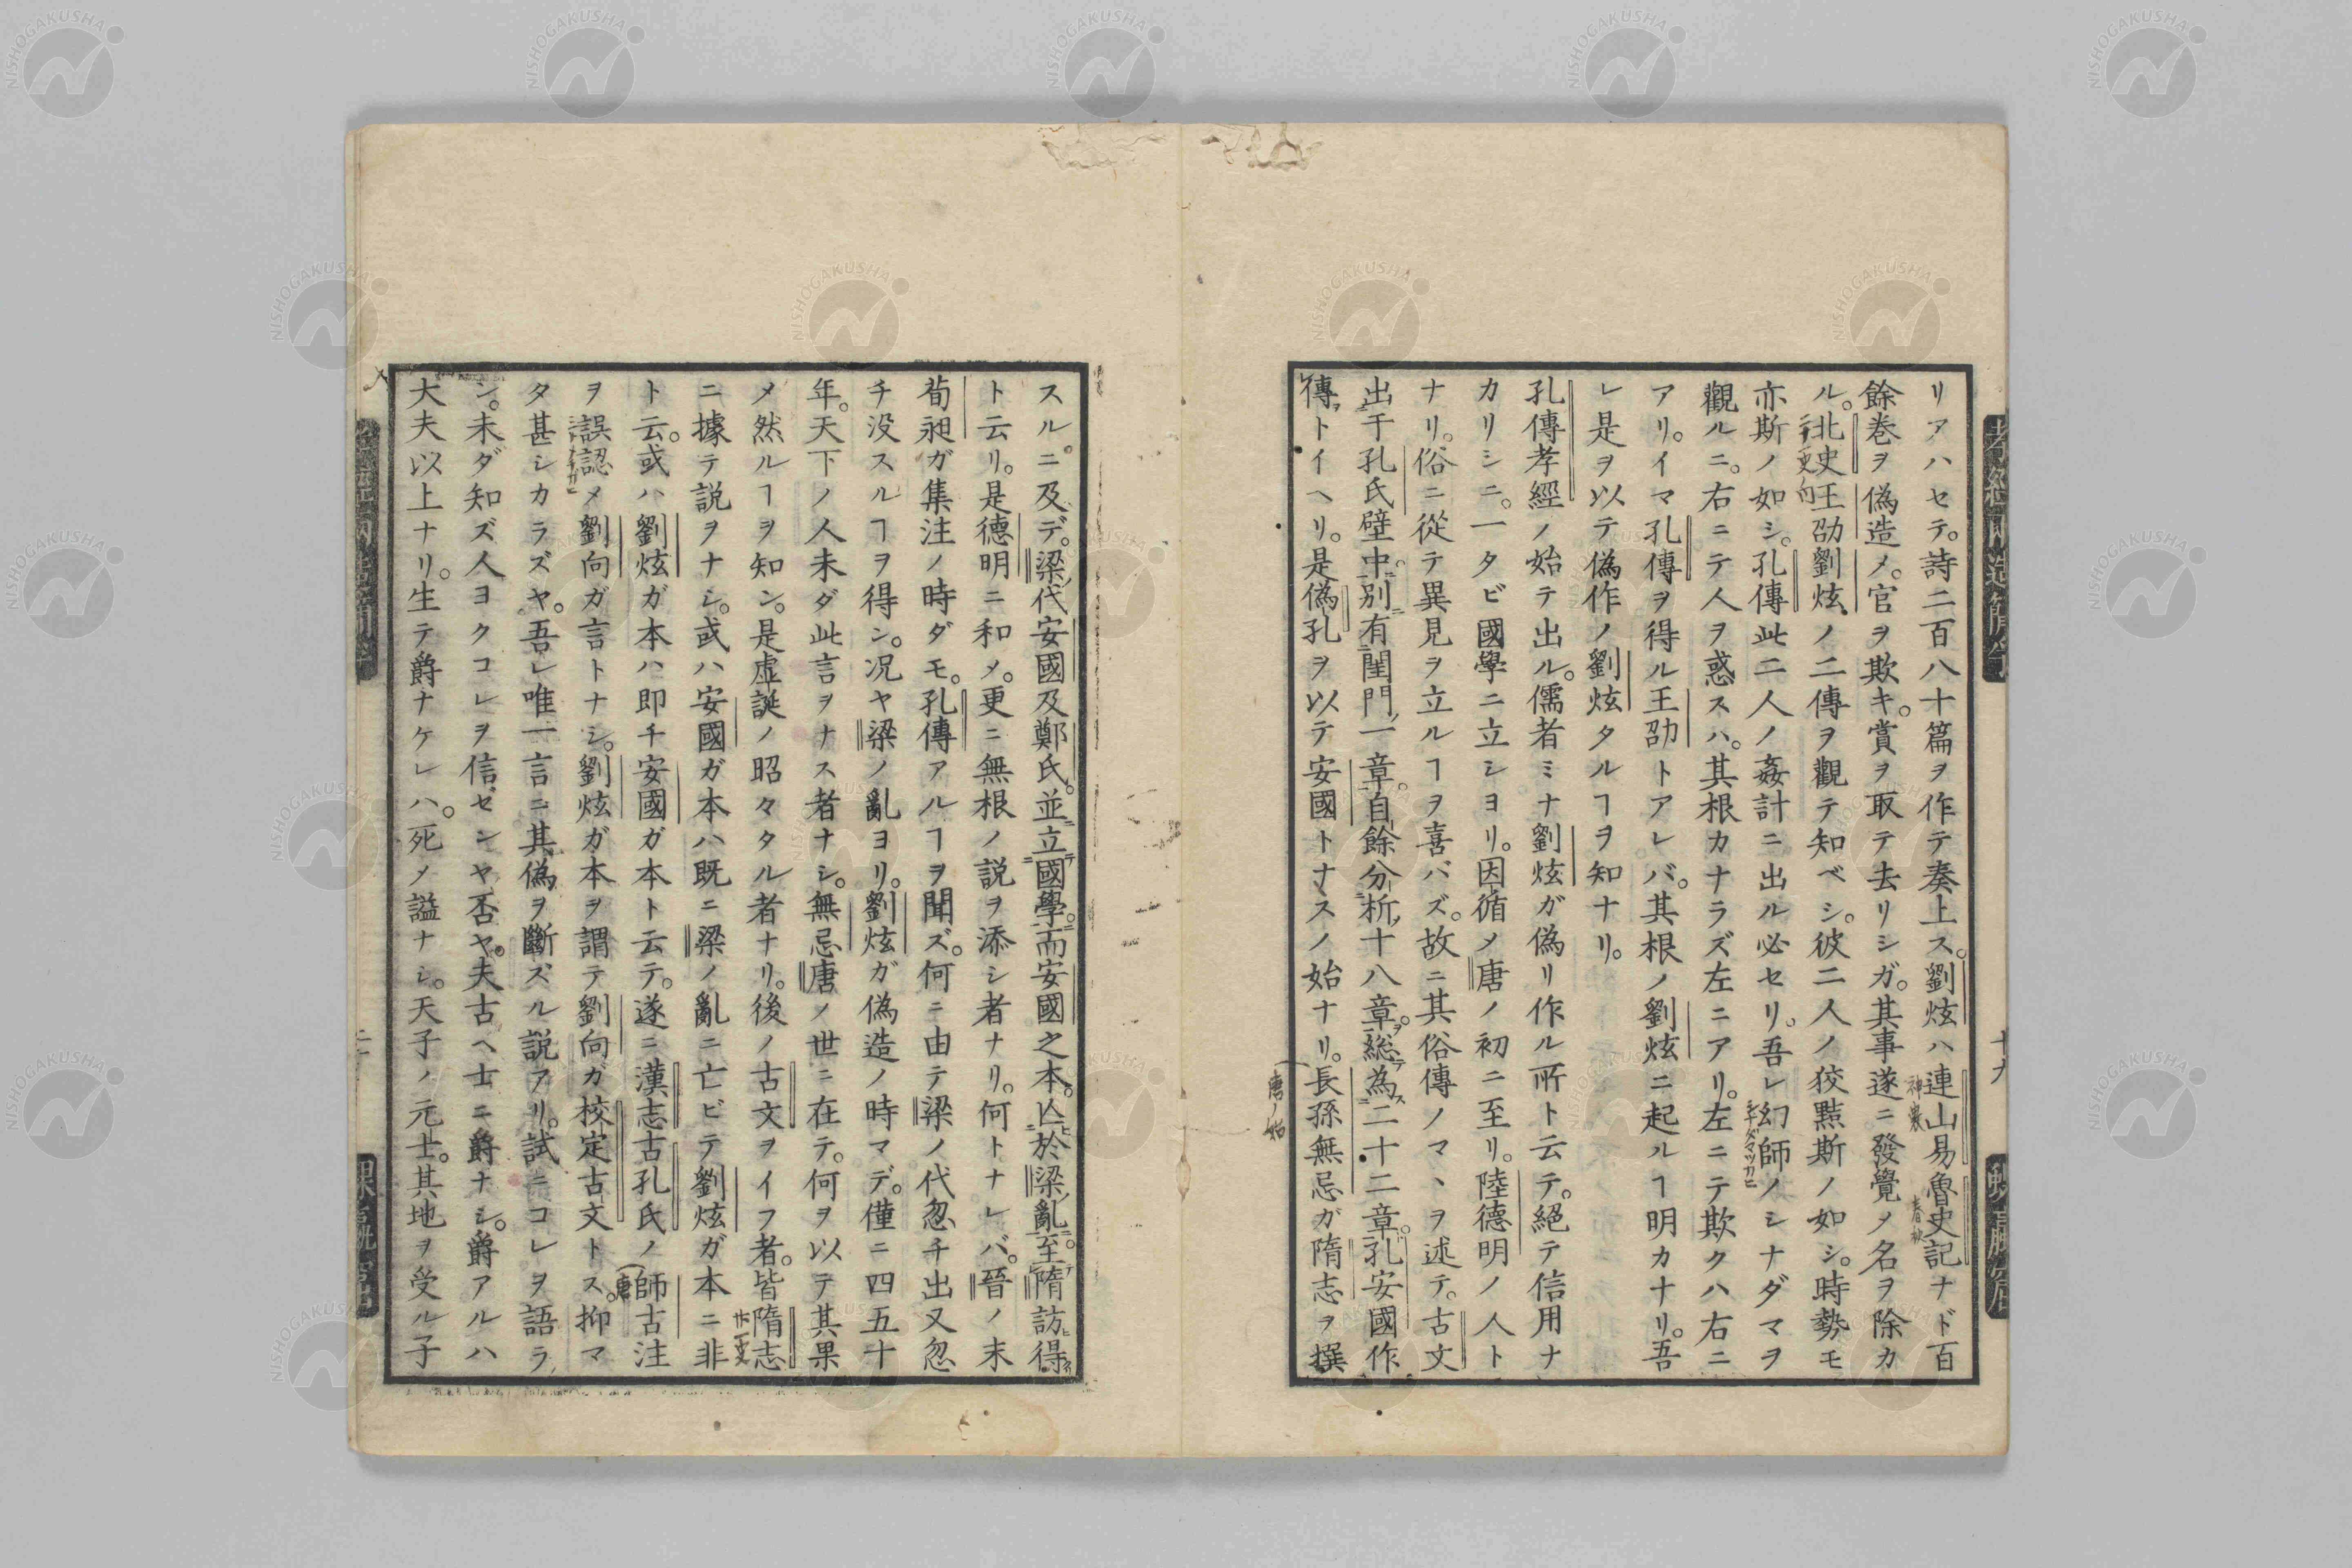 リアハセテ。詩二百八十篇ヲ作テ奏上ス。劉炫ハ連山易魯史記ナド百
餘巻ヲ偽造メ。官ヲ欺キ。賞ヲ取テ去リシガ。其事遂ニ發覺メ名ヲ除カ
ル。北史王劭劉炫ノ二傳ヲ觀テ知ベシ。彼二人ノ狡黠斯ノ如シ。時勢モ
亦斯ノ如シ。孔傳此二人ノ姦計ニ出ル必セリ。吾レ幻師ノシナダマヲ
觀ルニ。右ニテ人ヲ惑スハ。其根カナラズ左ニアリ。左ニテ欺クハ右ニ
アリ。イマ孔傳ヲ得ル王劭トアレバ。其根ノ劉炫ニ起ルヿ明カナリ。吾
レ是ヲ以テ偽作ノ劉炫タルヿヲ知ナリ。
孔傳孝經ノ始テ出ル。儒者ミナ劉炫ガ偽リ作ル所ト云テ。絕テ信用ナ
カリシニ。一タビ國學ニ立シヨリ。因循メ唐ノ初ニ至リ。陸德明ノ人ト
ナリ。俗ニ從テ異見ヲ立ルヿヲ喜バズ。故ニ其俗傳ノマヽヲ述テ。古文
出于孔氏壁中。別有閨門一章。自餘分析十八章。総為二十二章。孔安國作
傳トイヘリ。是偽孔ヲ以テ安國トナスノ始ナリ。長孫無忌ガ隋志ヲ撰
唐ノ始
スル。ニ及デ。梁代安國及鄭氏。並立國學。而安國之本。亾於梁亂。至隋訪得
ト云リ。是德明ニ和メ。更ニ無根ノ説ヲ添シ者ナリ。何トナレバ。晉ノ末
荀昶ガ集注ノ時ダモ。孔傳アルヿヲ聞ズ。何ニ由テ梁ノ代忽チ出又忽
チ没スルヿヲ得ン。况ヤ梁ノ亂ヨリ。劉炫ガ偽造ノ時マデ。僅ニ四五十
年。天下ノ人未ダ此言ヲナス者ナシ。無忌唐ノ世ニ在テ。何ヲ以テ其果
メ然ルヿヲ知ン。是虚誕ノ昭々タル者ナリ。後ノ古文ヲイフ者。皆隋志
ニ據テ説ヲナシ。或ハ安國ガ本ハ既ニ梁ノ亂ニ亡ビテ劉炫ガ本ニ非
ト云。或ハ劉炫ガ本ハ即チ安國ガ本ト云テ。遂ニ漢志古孔氏ノ師古注
ヲ誤認メ劉向ガ言トナシ。劉炫ガ本ヲ謂テ劉向ガ校定古文トス。抑マ
タ甚シカラズヤ。吾レ唯一言ニ其偽ヲ斷ズル説アリ。試ニコレヲ語ラ
ン。未ダ知ズ人ヨクコレヲ信ゼンヤ否ヤ。夫古ヘ士ニ爵ナシ。爵アルハ
大夫以上ナリ。生テ爵ナケレハ。死メ謚ナシ。天子ノ元士。其地ヲ受ル子